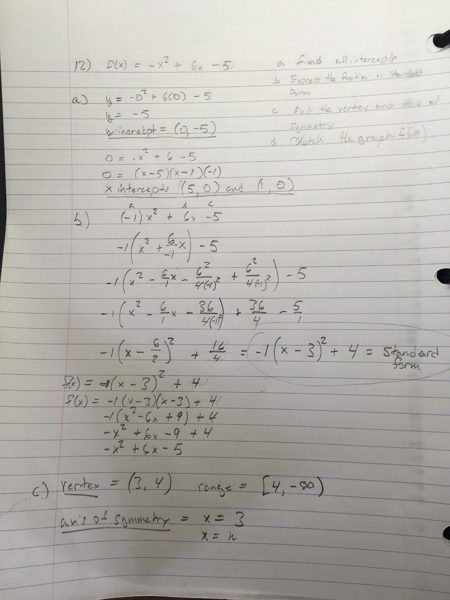 12) f(x) = -x² + 6x - 5
a find all intercepts
b Express the function in standard form
c find the vertex and axis of Symmetry
d sketch the graph f(x)
a) y = -0² + 6(0) - 5
y = -5
y intercept = (0, -5)
0 = -x² + 6 - 5
0 = (x-5)(x-1)(-1)
x intercepts (5, 0) and (1, 0)
b) (-1)x² + 6x - 5
a b c
-1(x² + 6/-1 x) - 5
-1(x² - 6/1 x - 6²/4(1)² + 6²/4(-1)²) - 5
-1(x² - 6/1 x - 36/4(-1)) + 36/4 - 5/1
-1(x - 6/2)² + 16/4 = -1(x - 3)² + 4 = Standard form
f(x) = -1(x - 3)² + 4
f(x) = -1(x-3)(x-3) + 4
-1(x² - 6x + 9) + 4
-x² + 6x - 9 + 4
-x² + 6x - 5
c.) vertex = (3, 4) range = [4, -∞)
axis of symmetry = x = 3
x = h